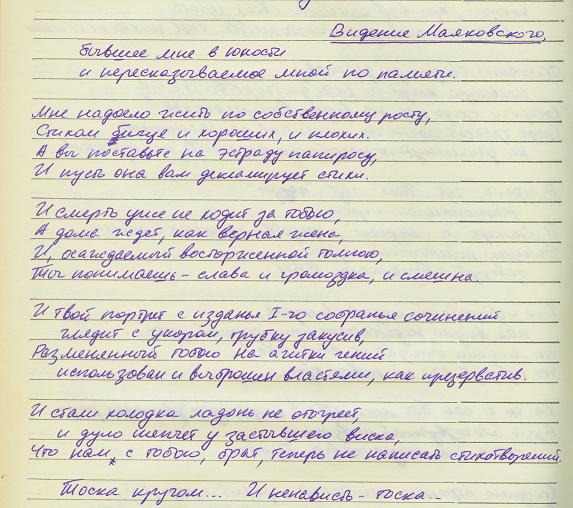 Видение Маяковского,
бывшее мне в юности
и пересказываемое мной по памяти.
Мне надоело жить по собственному росту,
Стихом бицые и хороших, и плохих.
А вы поставьте на эстраду папиросу,
И пусть она вам декламирует стихи.
И смерть уже не ходит за тобою,
А дома ждет, как верная жена,
И, осаждаемый восторженной толпою,
Ты понимаешь – слава и громоздка, и смешна.
И твой портрет с изданья I-го собранья сочинений
глядит с укором, трубку закусив,
Размененный тобою на агитки гений
использован и выброшен властями, как презерватив.
И стали холодка ладонь не отогреет,
и дуло шепчет у застывшего виска,
Что нам, с тобою, брат, теперь не написать стихотворений.
Тоска кругом... И ненависть – тоска...